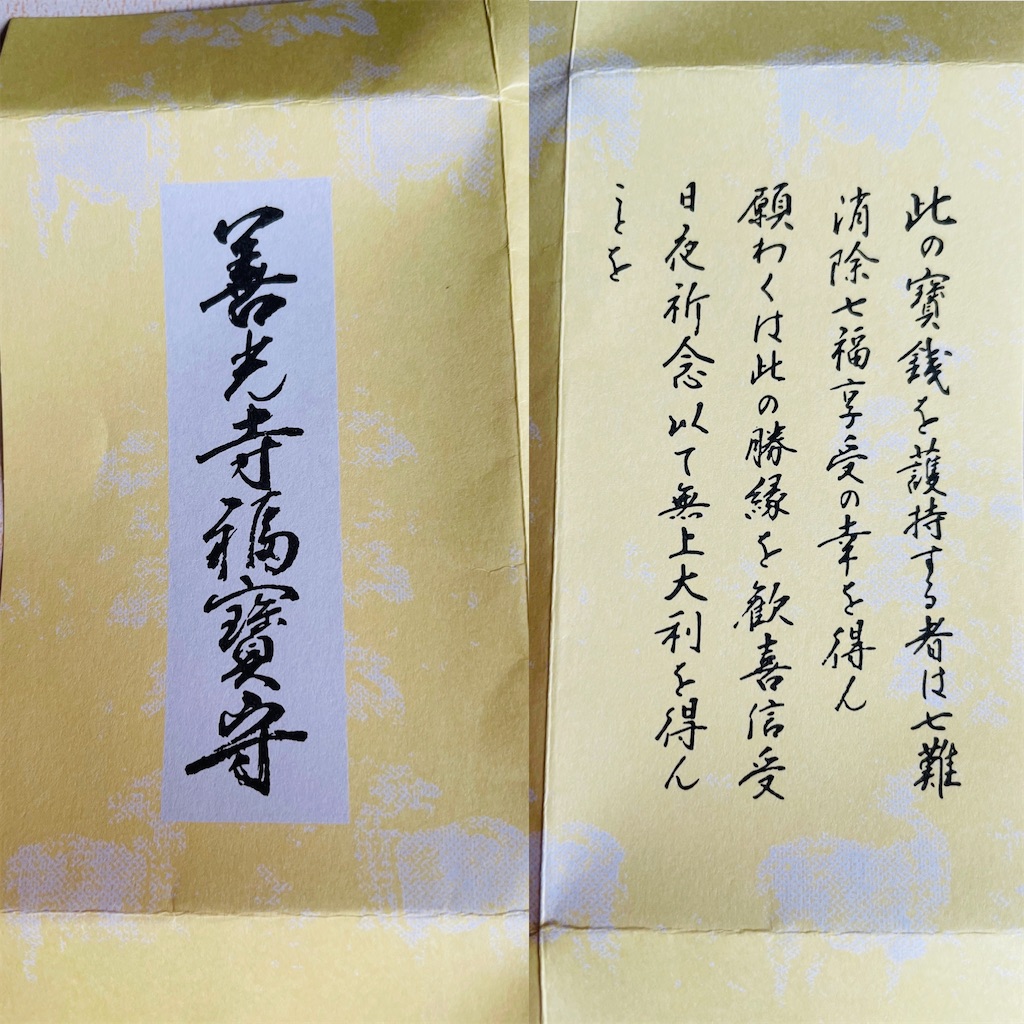 善光寺福寶守
此の寶銭を護持する者は七難
消除七福享受の幸を得ん
願わくは此の勝縁を歓喜信受
日夜祈念以て無上大利を得ん
ことを